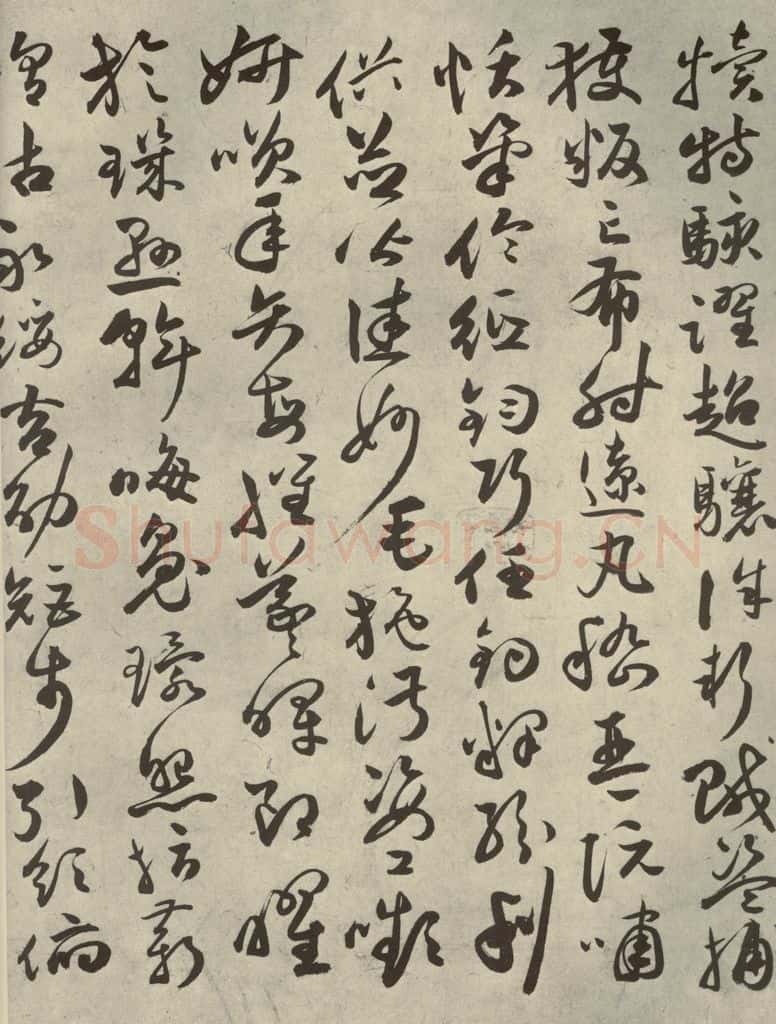 犢特駭躍超驤誅斬賊盜捕
獲叛亡布射遼丸嵇琴阮嘯
恬筆倫紙鈞巧任釣釋紛利
俗並皆佳妙毛施淑姿工嚬
妍咲年矢每催羲暉朗曜
旋璣懸斡晦魄環照指薪
永綏吉劭矩步引領俯
Shufawang.CN